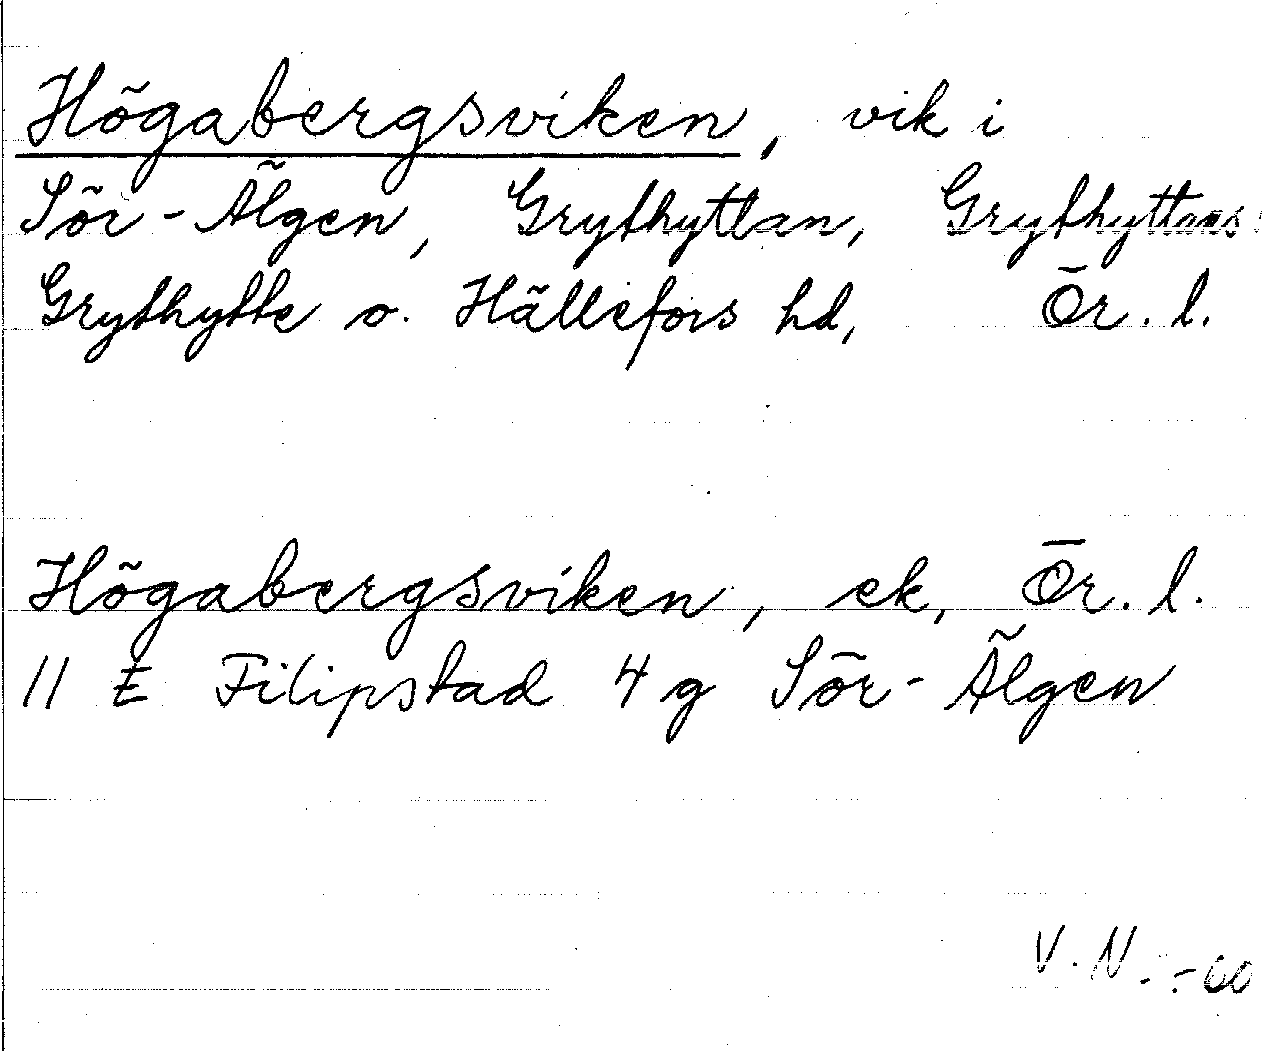 Högabergsviken, vik i
Sör-Älgen, Grythyttan, Grythyttans
Grythytte o. Hällefors hd, Ör. l.
Högabergsviken, ek, Ör. l.
11 E Filipstad 4 g Sör-Älgen
V. N. -60